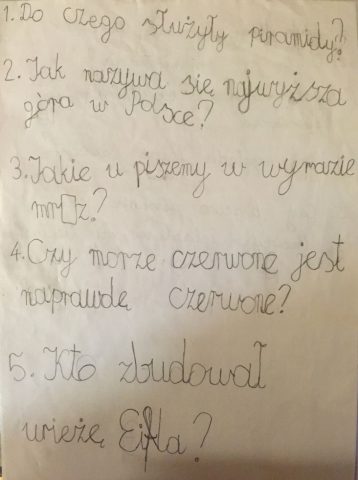 1. Do czego służyły piramidy?
2. Jak nazywa się najwyższa
góra w Polsce?
3. Jakie u piszemy w wyrazie
mr□z?
4. Czy morze czerwone jest
naprawdę czerwone?
5. Kto zbudował
wieżę Eifla?